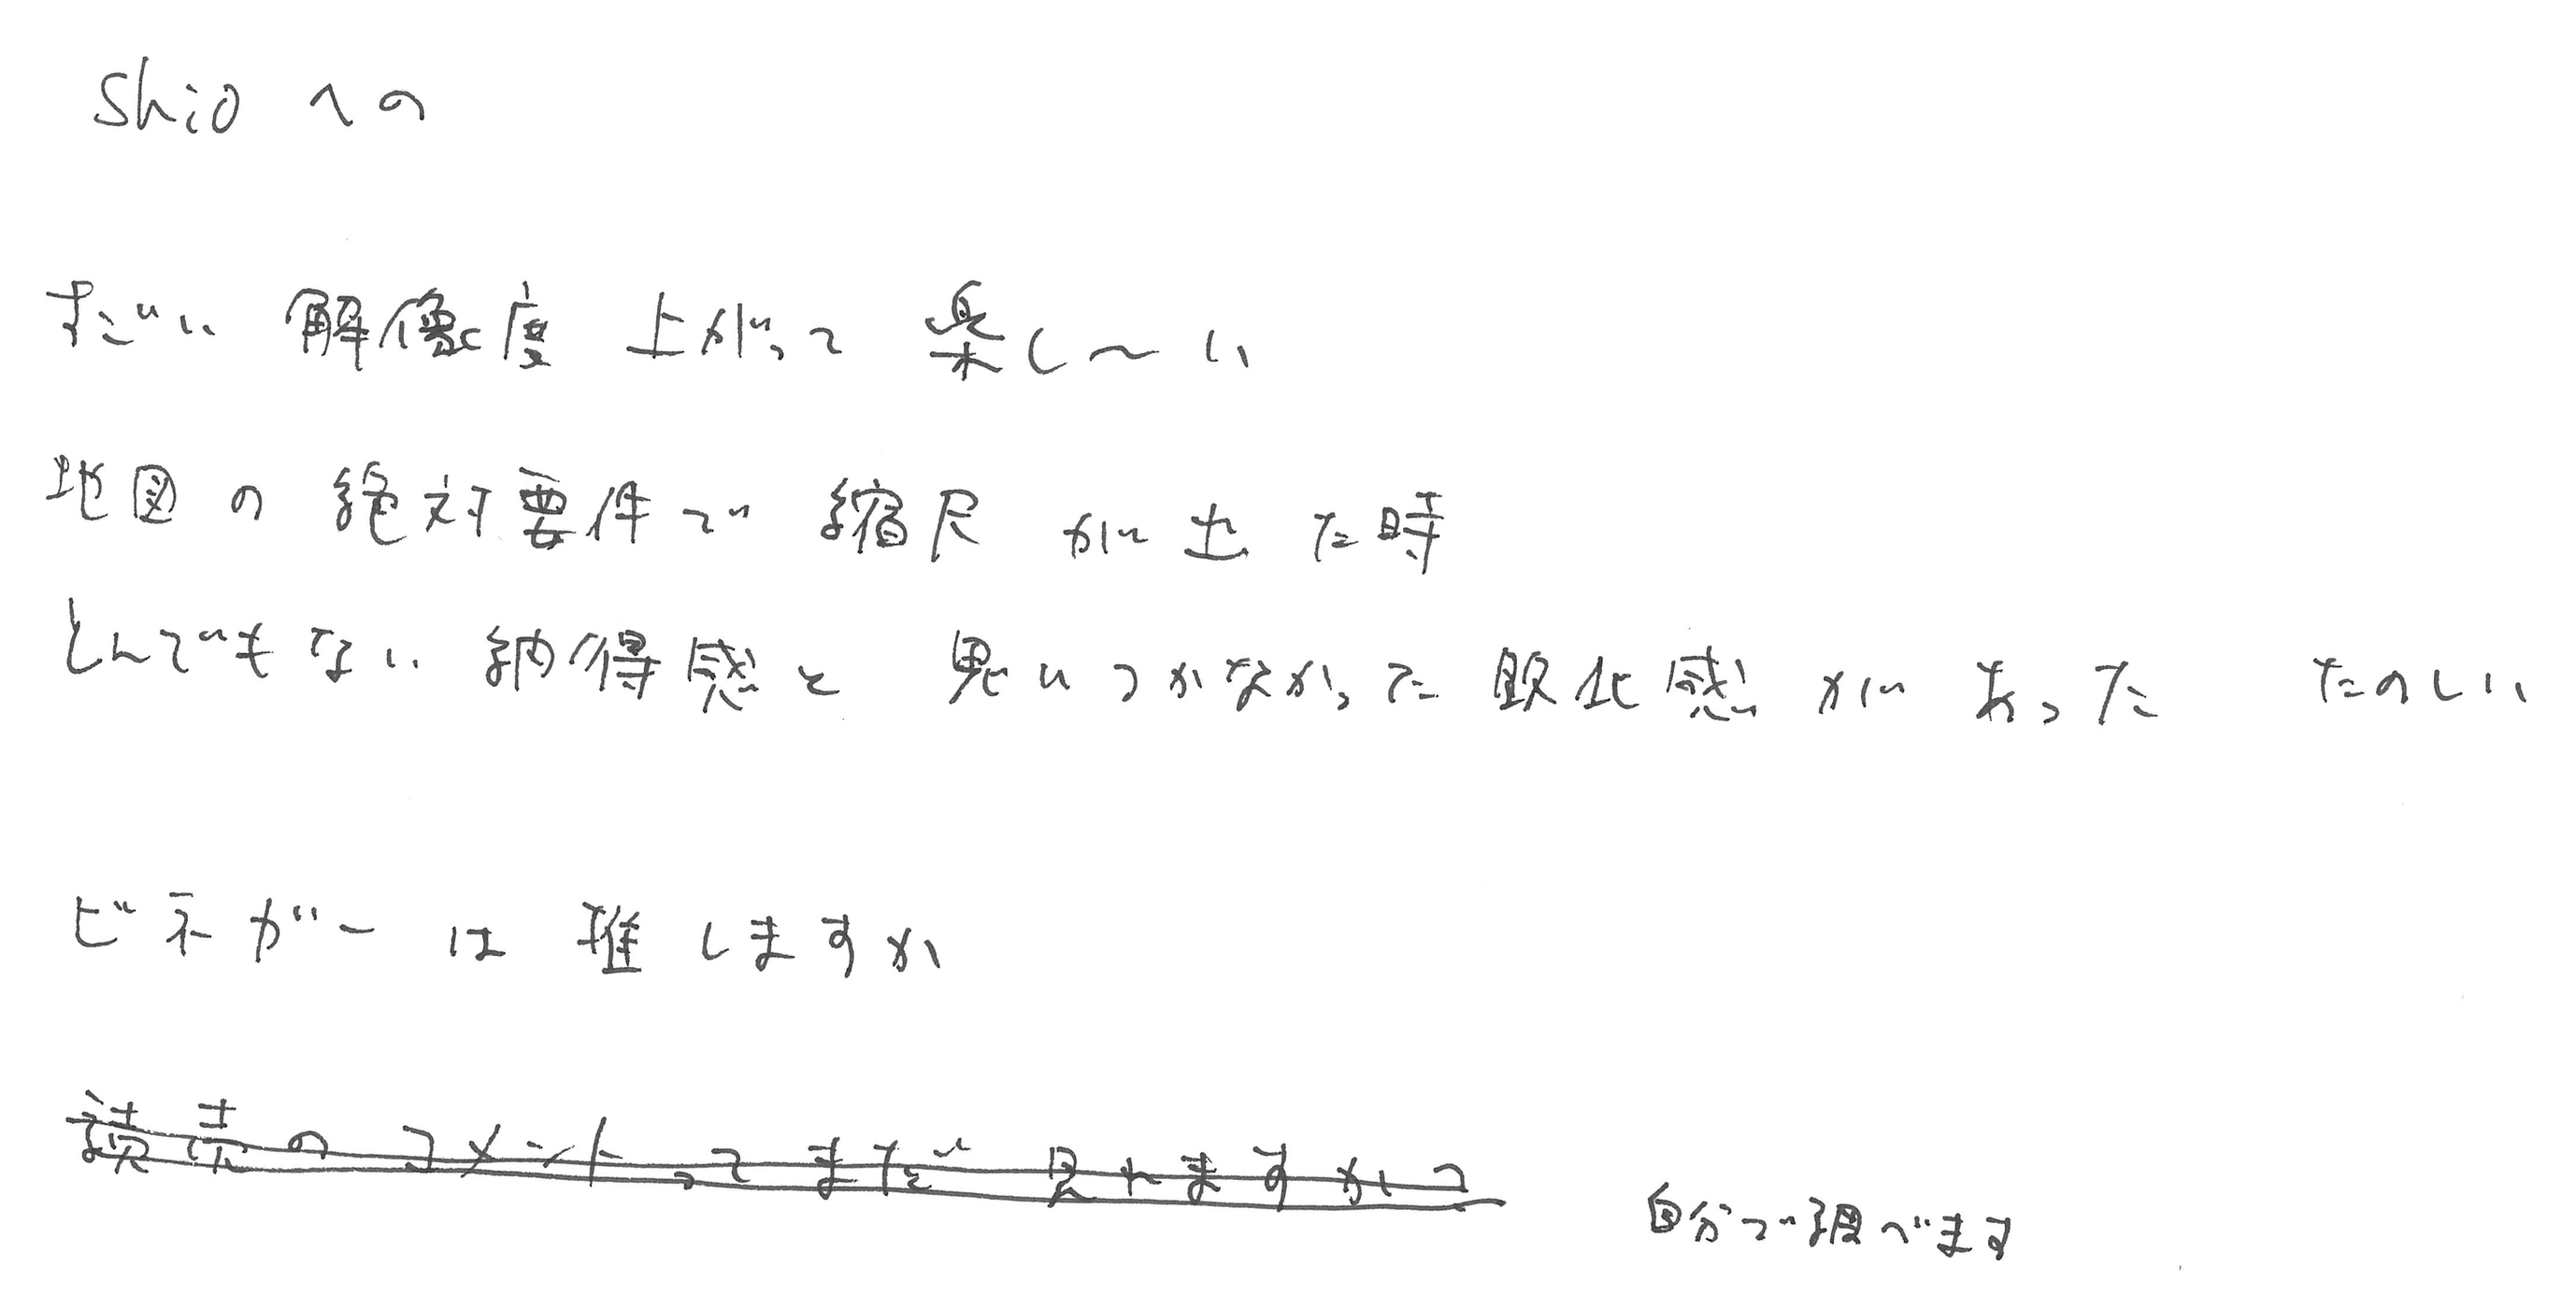 Shio への
すごい 解像度 上がって 楽し〜い
地図 の 絶対要件で 縮尺 が 出 た時
とんでもない 納得感と 思いつかなかった 敗北感 が あった たのしい
ビネガー は 推しますか
読売のコメントってまだ見れますかって
自分で調べます